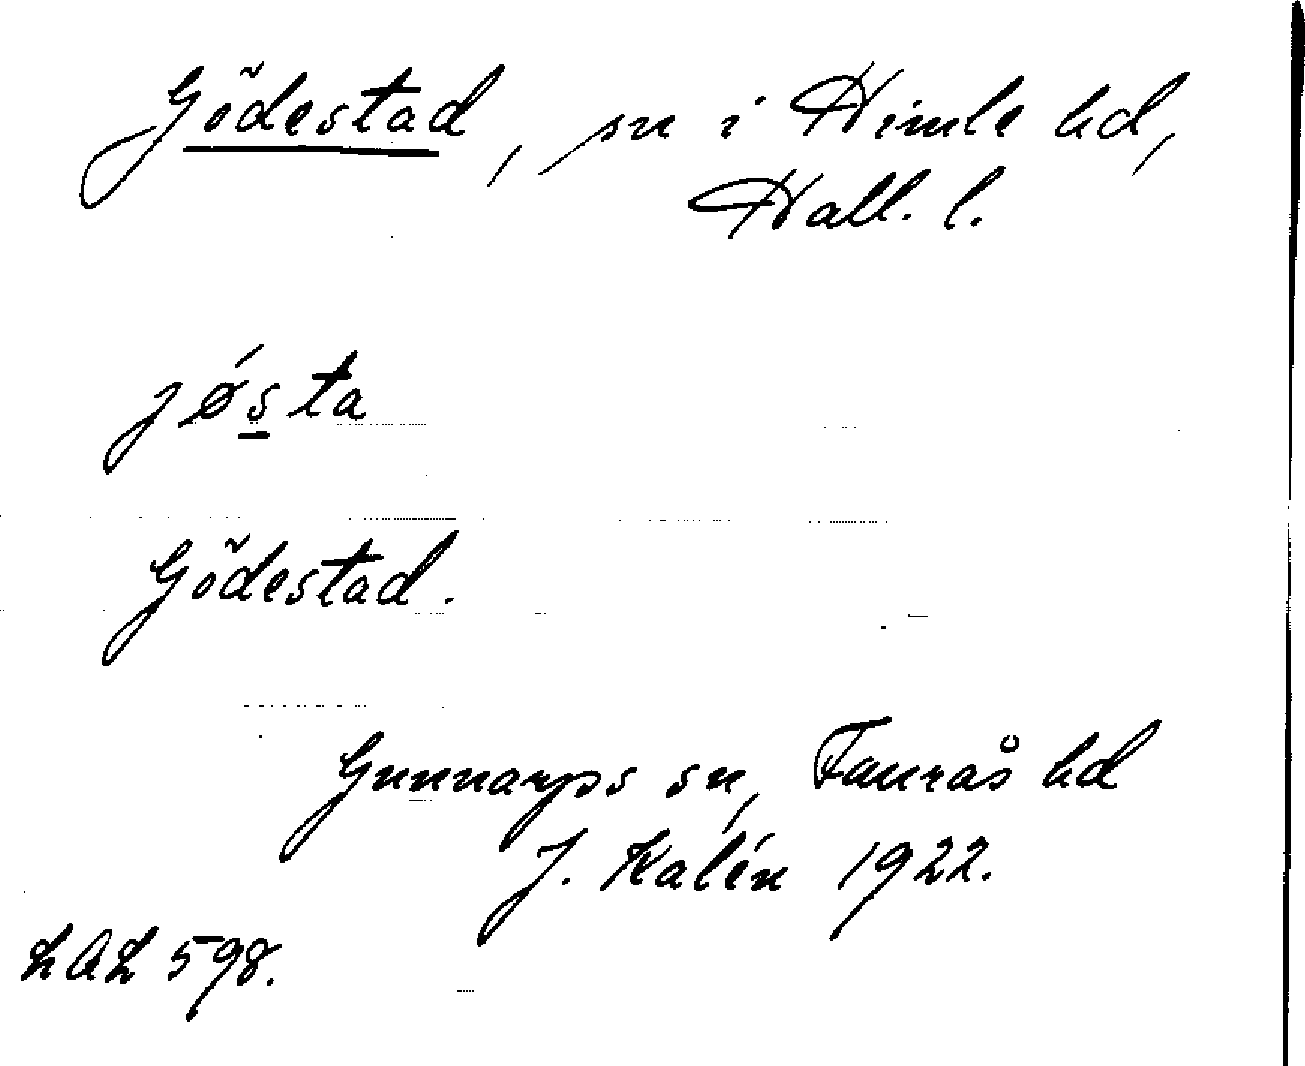 Gödestad, sn i Himle hd,
Hall. l.
jǿsta
Gödestad.
Gunnarps sn, Faurås hd
J. Kalén 1922.
LAL 598.